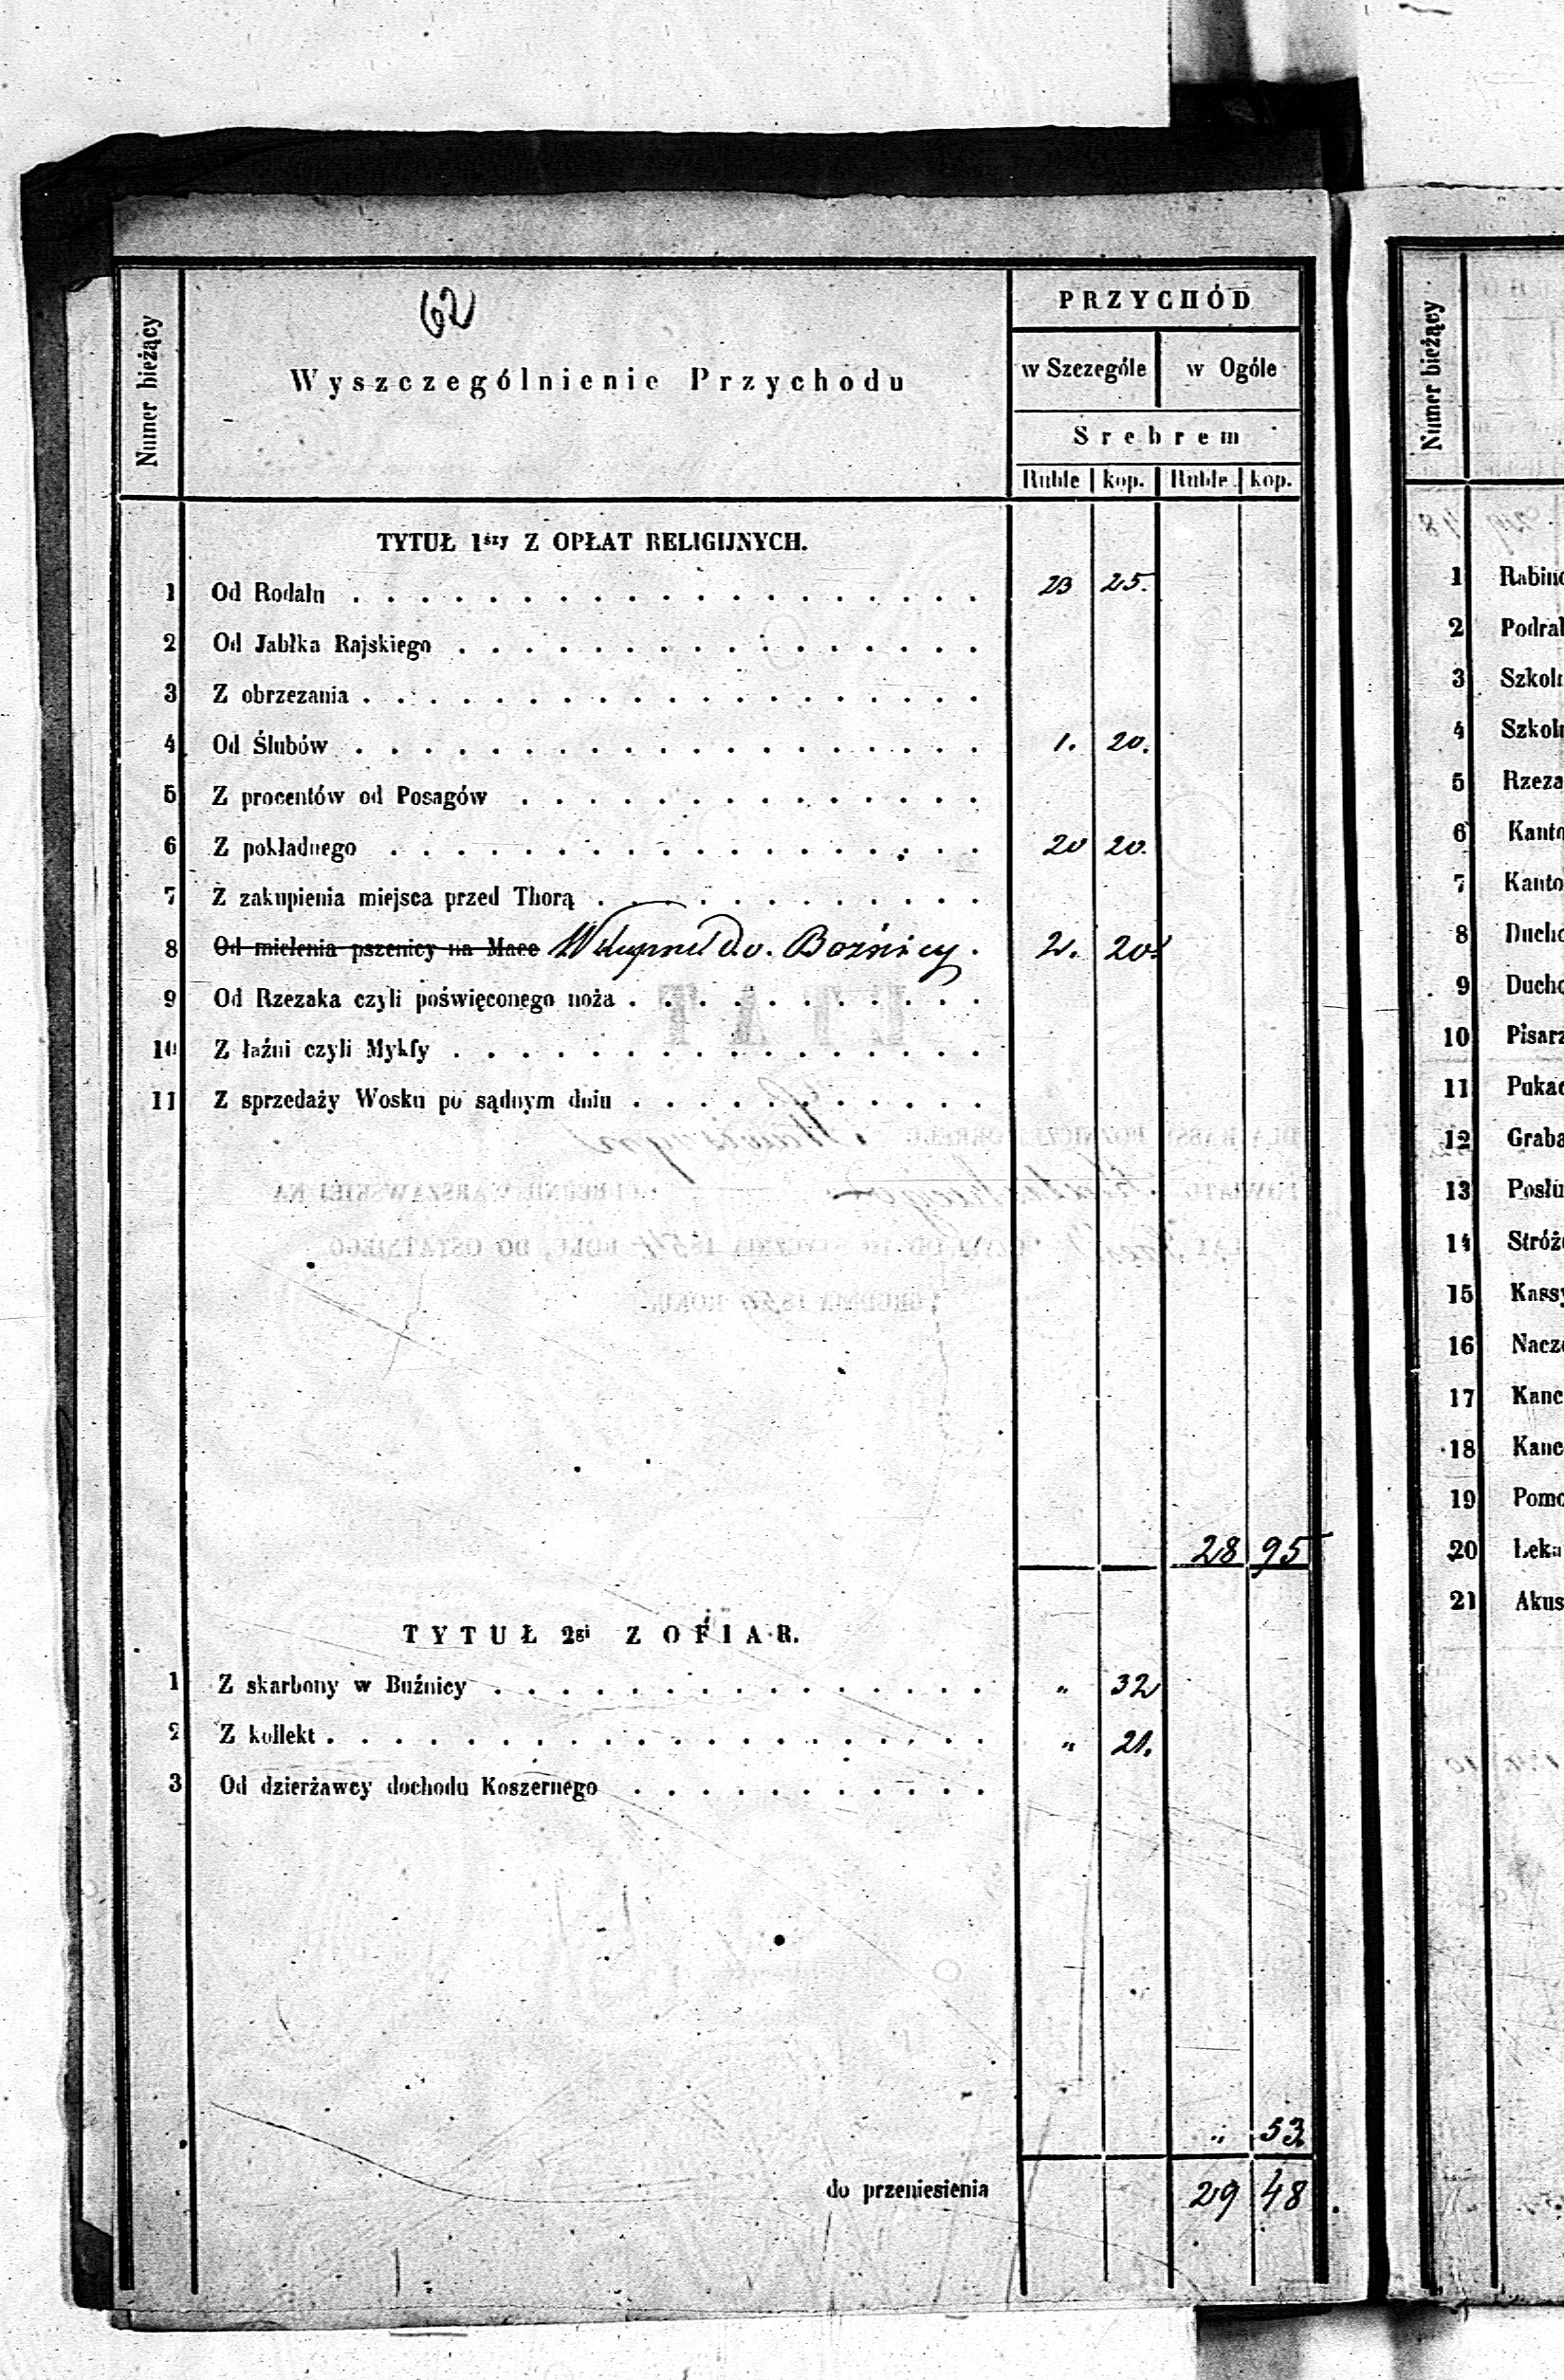 62
Numer bieżący
Wyszczególnienie Przychodu
PRZYCHÓD
w Szczególe w Ogóle
Srebrem
Ruble kop. Ruble kop.
TYTUŁ 1szy Z OPŁAT RELIGIJNYCH.
1 Od Rodału . . . . . . . . . . . . . . . . . . . 23 25.
2 Od Jabłka Rajskiego . . . . . . . . . . . . . . . .
3 Z obrzezania . . . . . . . . . . . . . . . . . . .
4 Od Ślubów . . . . . . . . . . . . . . . . . . . 1. 20.
5 Z procentów od Posagów . . . . . . . . . . . . . .
6 Z pokładnego . . . . . . . . . . . . . . . . . . 20 20.
7 Z zakupienia miejsca przed Thorą . . . . . . . . . . . .
8 Od mielenia pszenicy na Mace Wkupne do Bożnicy. 2. 20.
9 Od Rzezaka czyli poświęconego noża . . . . . . . . . . .
10 Z łaźni czyli Mykfy . . . . . . . . . . . . . . . .
11 Z sprzedaży Wosku po sądnym dniu . . . . . . . . . . .
28 95
TYTUŁ 2gi Z OFIAR.
1 Z skarbony w Buźnicy . . . . . . . . . . . . . . . „ 32
2 Z kollekt . . . . . . . . . . . . . . . . . . . . „ 21.
3 Od dzierżawcy dochodu Koszernego . . . . . . . . . . .
„ 53.
do przeniesienia 29 48
Numer bieżący
1
2
3
4
5 Rzeza
6 Kanto
7 Kanto
8 Ducho
9 Ducho
10 Pisarz
11
12 Graba
13 Posłu
14 Stróż
15 Kassy
16
17 Kanc
18 Kanc
19 Pomo
20 Leka
21 Akus